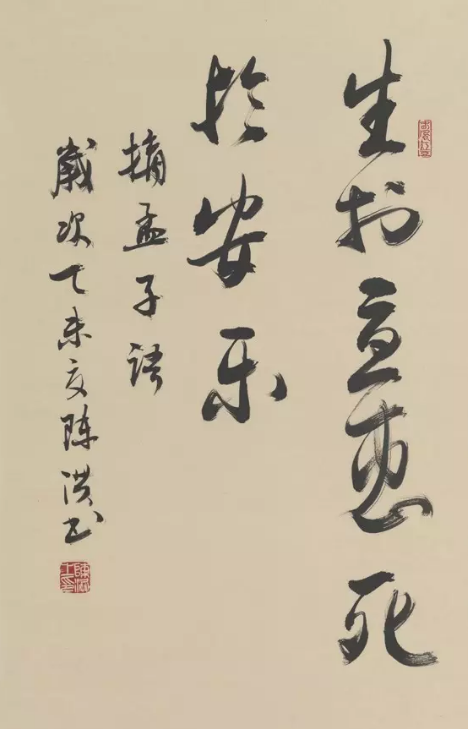 生於憂患死
於安樂
摘孟子語
歲次乙未夏陳洪書